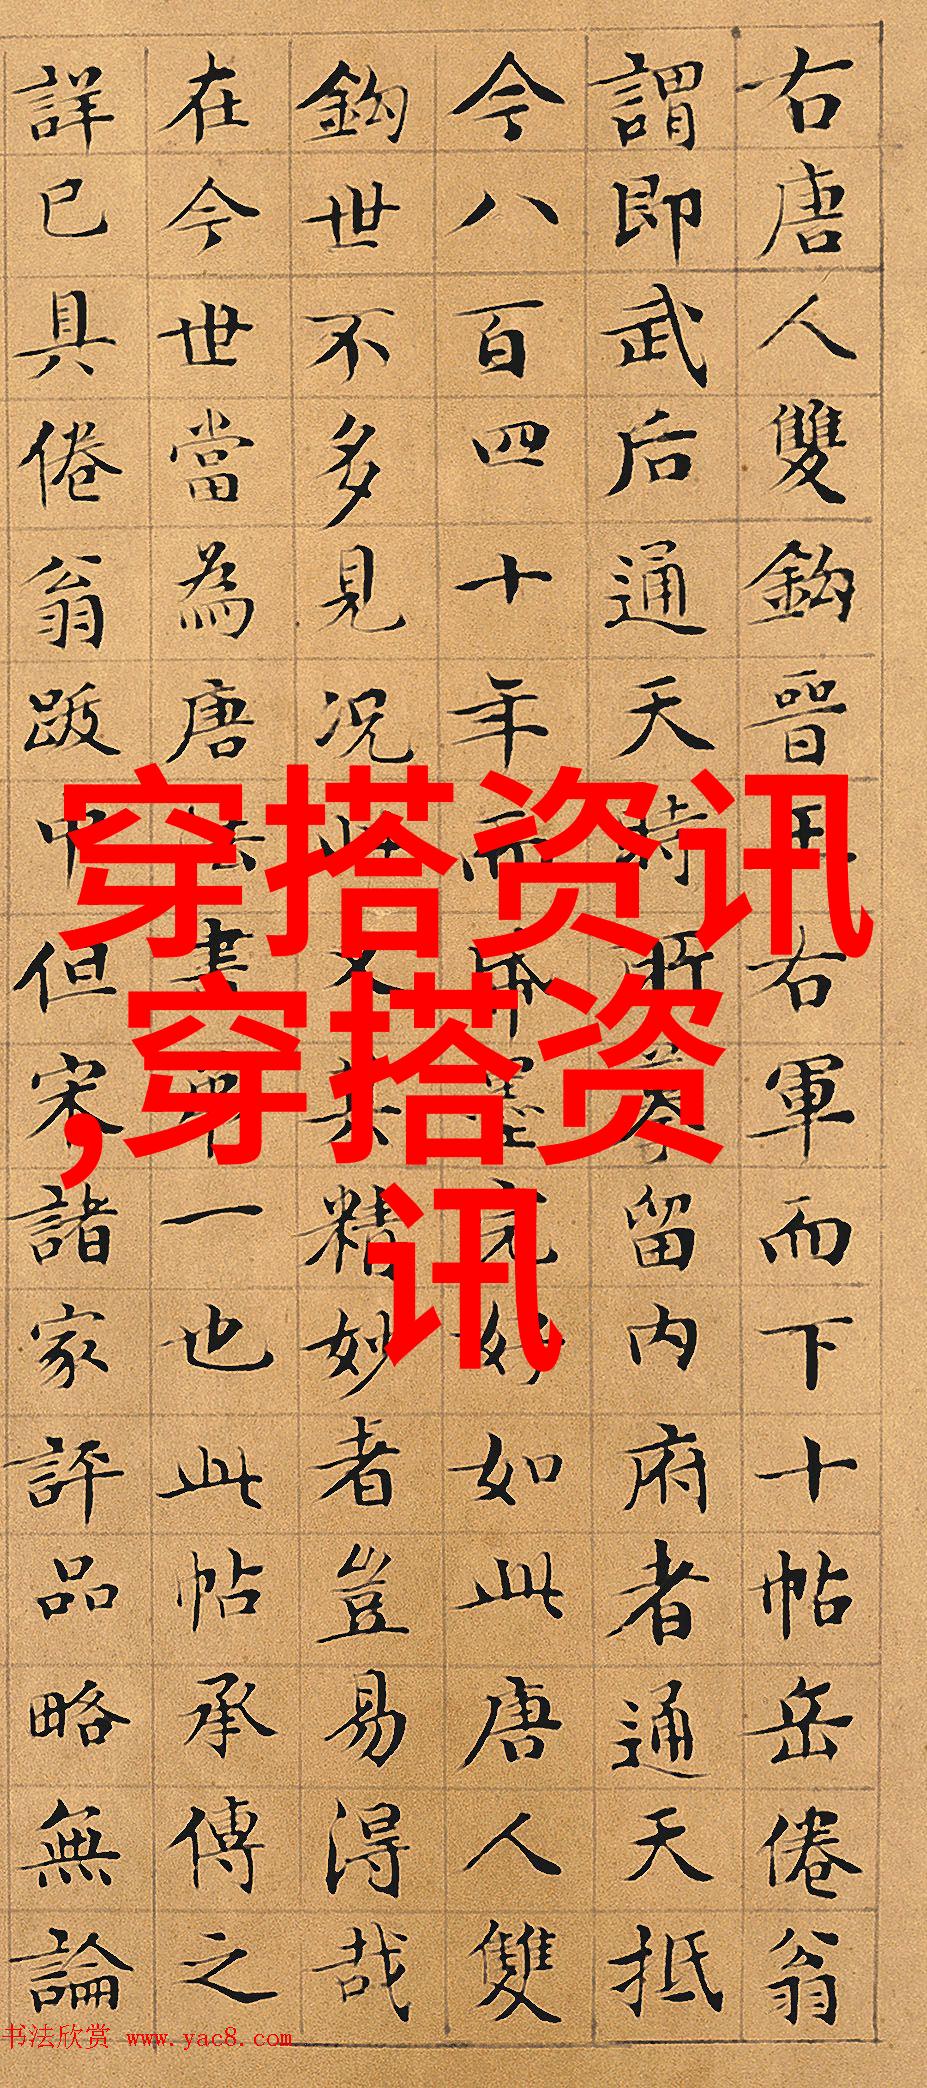 右唐人雙鈎晉王右軍而下十帖岳倦翁
謂即武后通天時所摹留内府者通天抵
今八百四十年而帋墨完好如此唐人雙
鈎世不多見况此又其精妙者豈易得哉
在今世當為唐法書第一也此帖承傳之
詳已具倦翁跋中但宋諸家評品略無論
穿搭资讯
,穿搭资
讯
书法欣赏 www.yac8.com